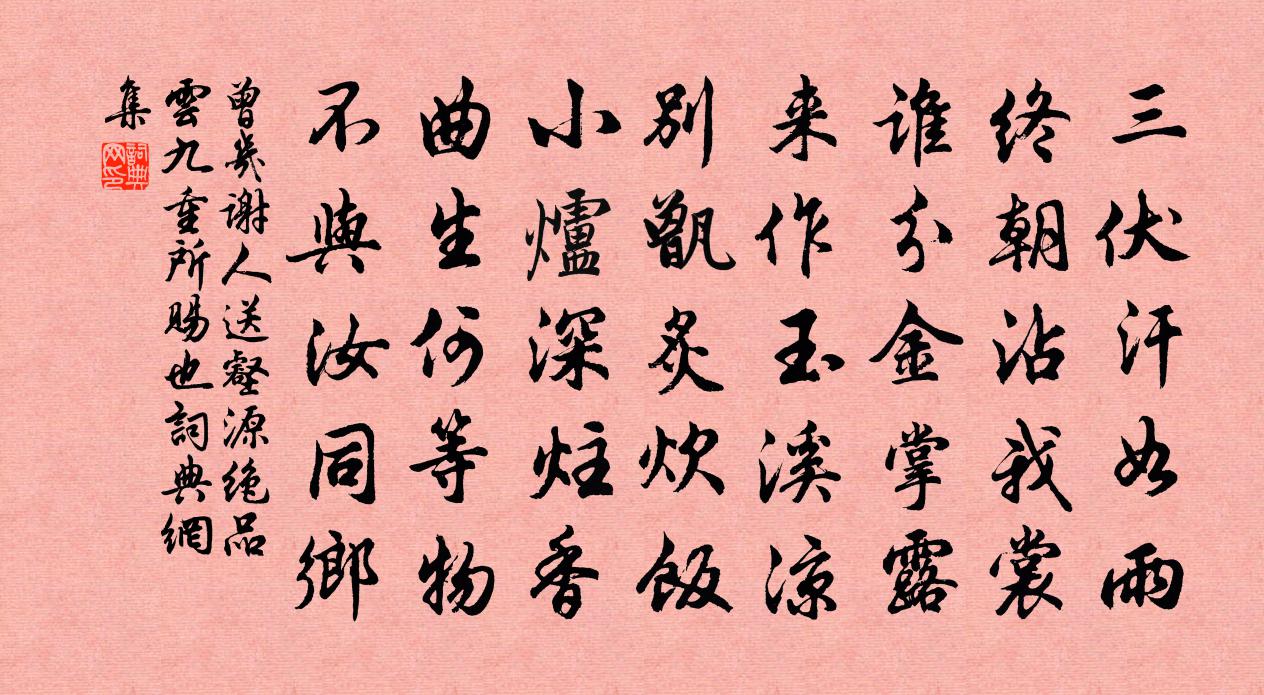 三伏汗如雨
終朝沾我裳
誰分金掌露
来作玉溪涼
別甑炙炊飯
小爐深炷香
曲生何等物
不與汝同鄉
曾幾謝人送壑源絶品
雲九重所賜也詞典網
集
詞典網印